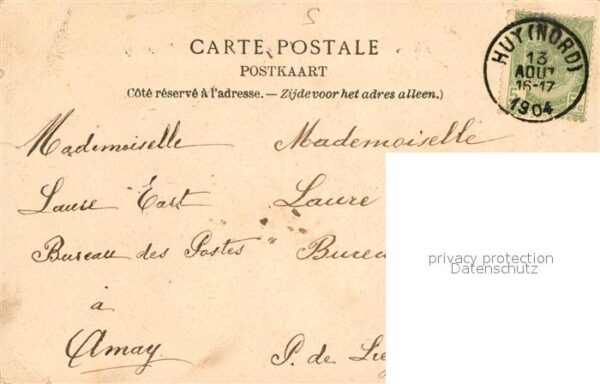 CARTE POSTALE
POSTKAART
Côté réservé à l'adresse. — Zijde voor het adres alleen.)
HUY (NORD)
13
AOUT
16-17
1904
Mademoiselle Mademoiselle
Laure East Laure
Bureau des Postes Burea
à
Amay P. de Lie
privacy protection
Datenschutz